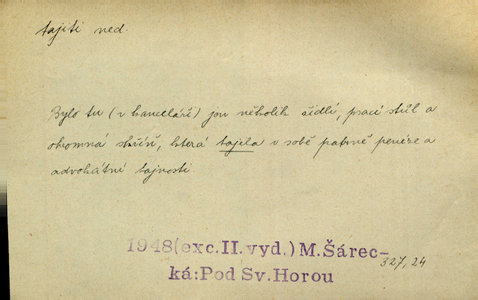 tajiti ned.
Bylo tu (v kanceláři) jen několik židlí, prací stůl a
ohromná skříň, která tajila v sobě patrně peníze a
advokátní tajnosti.
1948(exc.II.vyd.)M.Šárec-
ká:Pod Sv.Horou
327, 24